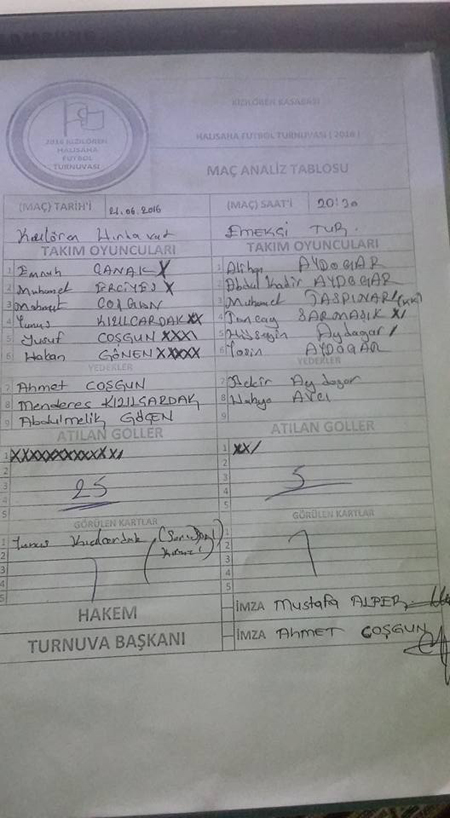 KIZILÖREN
HALISAHA
FUTBOL
TURNUVASI
KIZILÖREN KASABASI
HALISAHA FUTBOL TURNUVASI ( 2016 )
MAÇ ANALİZ TABLOSU
(MAÇ) TARİH'İ 21.06.2016 (MAÇ) SAATİ 20:30
Kızılören EMEKÇİ TUR.
TAKIM OYUNCULARI TAKIM OYUNCULARI
1 Emrah ÇANAK X 1 Alihan AYDOĞAR
2 Muhammet ERCİYES X 2 Abdul Kadir AYDOGAR
3 Mehmet COŞGUN 3 Muhamet TAŞPINAR
4 Yunus KIZILCARDAK XX 4 Tuncay SARMAŞIK X/
5 Yusuf COŞGUN XXX\ 5 Hüseyin Aydogar /
6 Hakan GÖNEN XXXXX 6 Yasin AYDOGAR
YEDEKLER YEDEKLER
7 Ahmet COŞGUN 7 Bekir Aydogar
8 Menderes KIZILSARDAK 8 Yahya AVCI
9 Abdulmelik GÖÇEN 9
ATILAN GOLLER ATILAN GOLLER
1 XXXXXXXXXXXX/ 1 XX/
2 2
3 25 3 5
4 4
5 5
GÖRÜLEN KARTLAR GÖRÜLEN KARTLAR
1 Yunus 1
2 2
3 3
4 4
5 5
HAKEM İMZA Mustafa ALPER
TURNUVA BAŞKANI İMZA Ahmet COŞGUN